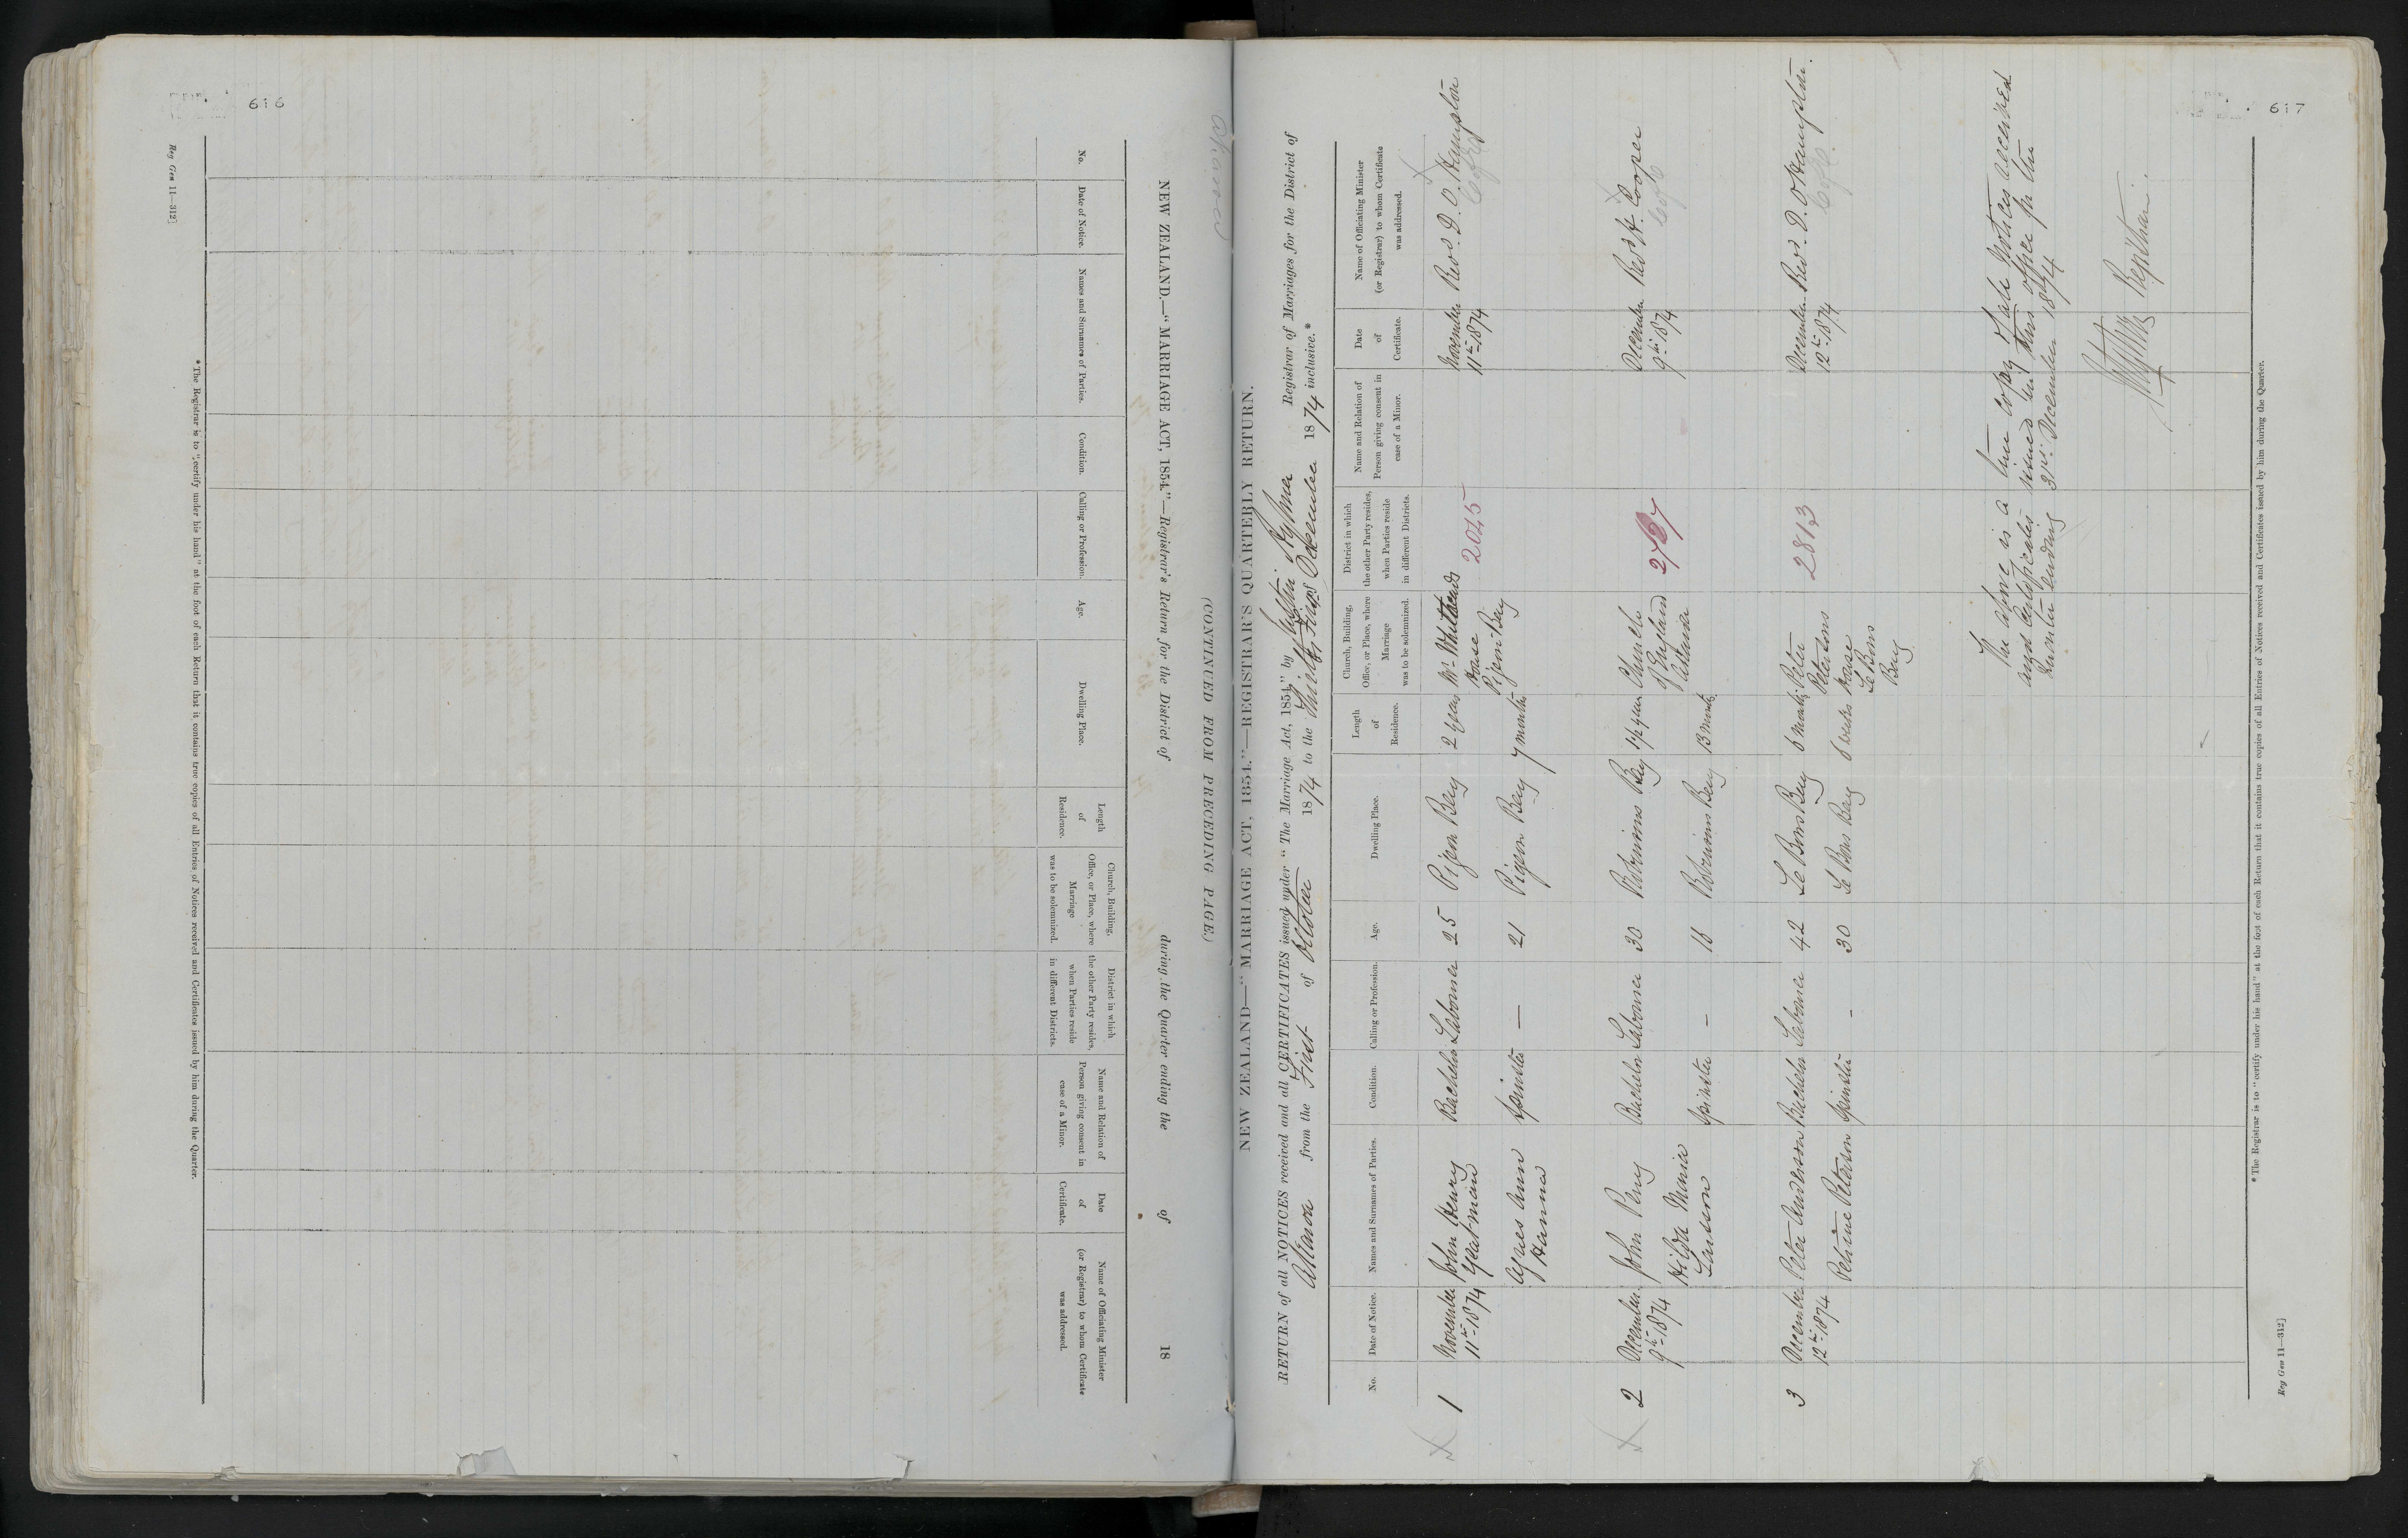 616
Reg Gen 11—312]
NEW ZEALAND.—"MARRIAGE ACT, 1854."—Registrar's Return for the District of during the Quarter ending the of 18
(CONTINUED FROM PRECEDING PAGE.)
No.
Date of Notice.
Names and Surnames of Parties.
Condition.
Calling or Profession.
Age.
Dwelling Place.
Length of Residence.
Church, Building, Office, or Place, where Marriage was to be solemnized.
District in which the other Party resides, when Parties reside in different Districts.
Name and Relation of Person giving consent in case of a Minor.
Date of Certificate.
Name of Officiating Minister (or Registrar) to whom Certificate was addressed.
*The Registrar is to "certify under his hand" at the foot of each Return that it contains true copies of all Entries of Notices received and Certificates issued by him during the Quarter.
617
Akaroa
NEW ZEALAND—"MARRIAGE ACT, 1854."—REGISTRAR'S QUARTERLY RETURN.
RETURN of all NOTICES received and all CERTIFICATES issued under "The Marriage Act, 1854," by Justin Aylmer Registrar of Marriages for the District of
Akaroa from the First of October 1874 to the Thirty First December 1874 inclusive.*
No.
Date of Notice.
Names and Surnames of Parties.
Condition.
Calling or Profession.
Age.
Dwelling Place.
Length of Residence.
Church, Building, Office, or Place, where Marriage was to be solemnized.
District in which the other Party resides, when Parties reside in different Districts.
Name and Relation of Person giving consent in case of a Minor.
Date of Certificate.
Name of Officiating Minister (or Registrar) to whom Certificate was addressed.
1 November John Henry Bachelor Labourer 25 Pigeon Bay 2 years Mr Whiteheads 2045 November Revd. D. O. Hampton
11th 1874 Yeatman House 11th 1874 C of E
Agnes Ann Spinster — 21 Pigeon Bay 7 months Pigeon Bay
Hanna
2 December John Peny Bachelor Labourer 30 Robinsons Bay 1½ year Church December Revd H. Cooper
9th 1874 Hilda Maria of England 9th 1874 C of E
Larsson Spinster — 18 Robinsons Bay 13 months Akaroa
3 December Peter Anderson Bachelor Labourer 42 Le Bons Bay 6 months Peter 2813 December Revd. D. O Hampton.
12th 1874 Petersons 12th 1874 C of E.
Petrine Peterson Spinster — 30 Le Bons Bay 6 weeks House
Le Bons
Bay
The above is a true copy of all Notices received
and Certificates issued in this office for the
Quarter ending 31st December 1874
Registrar.
*The Registrar is to "certify under his hand" at the foot of each Return that it contains true copies of all Entries of Notices received and Certificates issued by him during the Quarter.
Reg Gen 11—312]